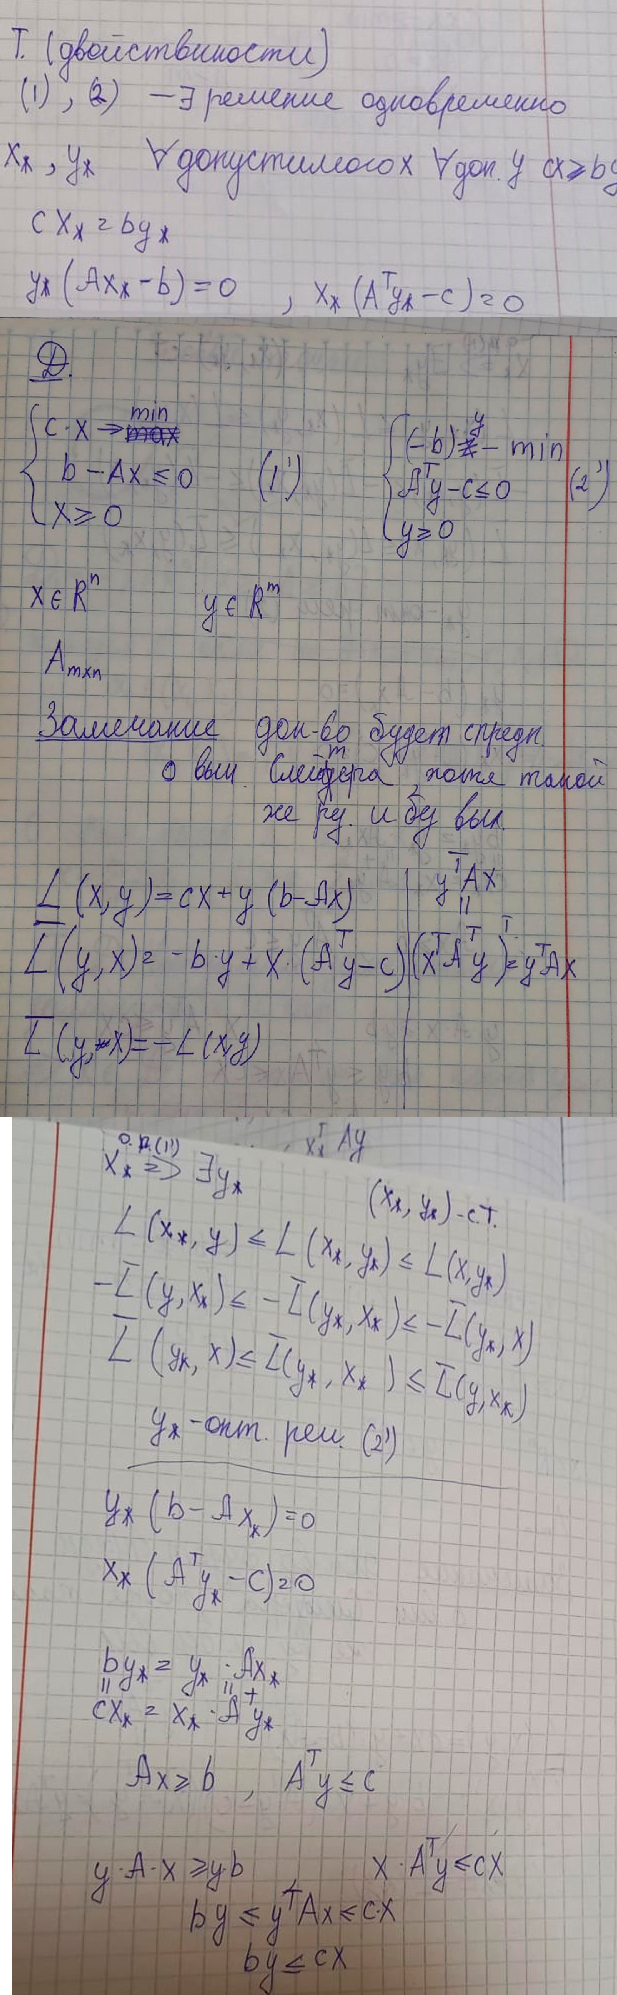 Т. (двойственности)
(1), (2) – ∃ решение одновременно
x*, y* ∀ допустимого x ∀ доп. y cx ≥ by
cx* = by*
y*(Ax* - b) = 0 , x*(Aᵀy* - c) = 0
Д.
c·x → min (1')
b - Ax ≤ 0
x ≥ 0
(-b)y - min (2')
Aᵀy - c ≤ 0
y ≥ 0
x ∈ Rⁿ y ∈ Rᵐ
Aₘₓₙ
Замечание док-во будет с предп.
о вып. Слейтера, хотя такой
же рез. и без вып.
L(x,y) = cx + y(b - Ax)
yᵀAx
=
L̄(y,x) = -b·y + x·(Aᵀy - c) (xᵀAᵀy)ᵀ = yᵀAx
L̄(y,x) = -L(x,y)
x*ᵀ Ay
о.р.(1')
x* => ∃y* (x*, y*) - с.т.
L(x*, y) ≤ L(x*, y*) ≤ L(x, y*)
-L̄(y, x*) ≤ -L̄(y*, x*) ≤ -L̄(y*, x)
L̄(y*, x) ≤ L̄(y*, x*) ≤ L̄(y, x*)
y* - опт. реш. (2')
y*(b - Ax*) = 0
x*(Aᵀy* - c) = 0
by* = y*·Ax*
= =
cx* = x*·Aᵀy*
Ax ≥ b , Aᵀy ≤ c
y·A·x ≥ yb x·Aᵀy ≤ cx
by ≤ yᵀAx ≤ c·x
by ≤ cx